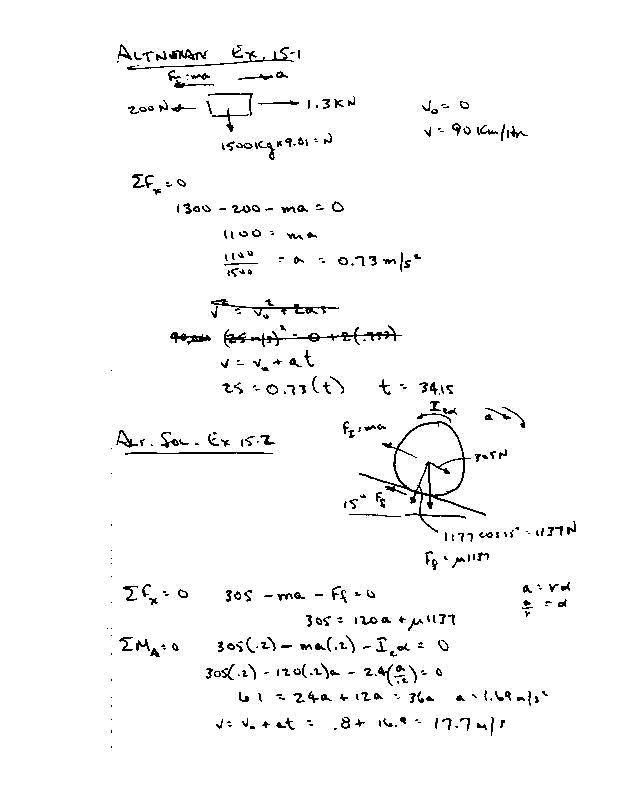 ALTNMAN Ex. 15-1
F_I = ma → a
200 N 1.3 KN V₀ = 0
1500 Kg × 9.81 = N V = 90 Km/Hr
ΣFₓ = 0
1300 - 200 - ma = 0
1100 = ma
1100/1500 = a = 0.73 m/s²
V² = V₀² + 2as
(25 m/s)² = 0 + 2(.733)
V = V₀ + at
25 = 0.73(t) t = 34.1s
I₀α
F_I = ma a
ALT. SOL. Ex 15.2
305 N
15° F_f
1177 cos 15° = 1137 N
F_f = μ1137
ΣFₓ = 0 305 - ma - Ff = 0 a = rα
305 = 120a + μ1137 a/r = α
ΣM_A = 0 305(.2) - ma(.2) - I₀α = 0
305(.2) - 120(.2)a - 2.4(a/.2) = 0
61 = 24a + 12a = 36a a = 1.69 m/s²
V = V₀ + at = .8 + 16.9 = 17.7 m/s